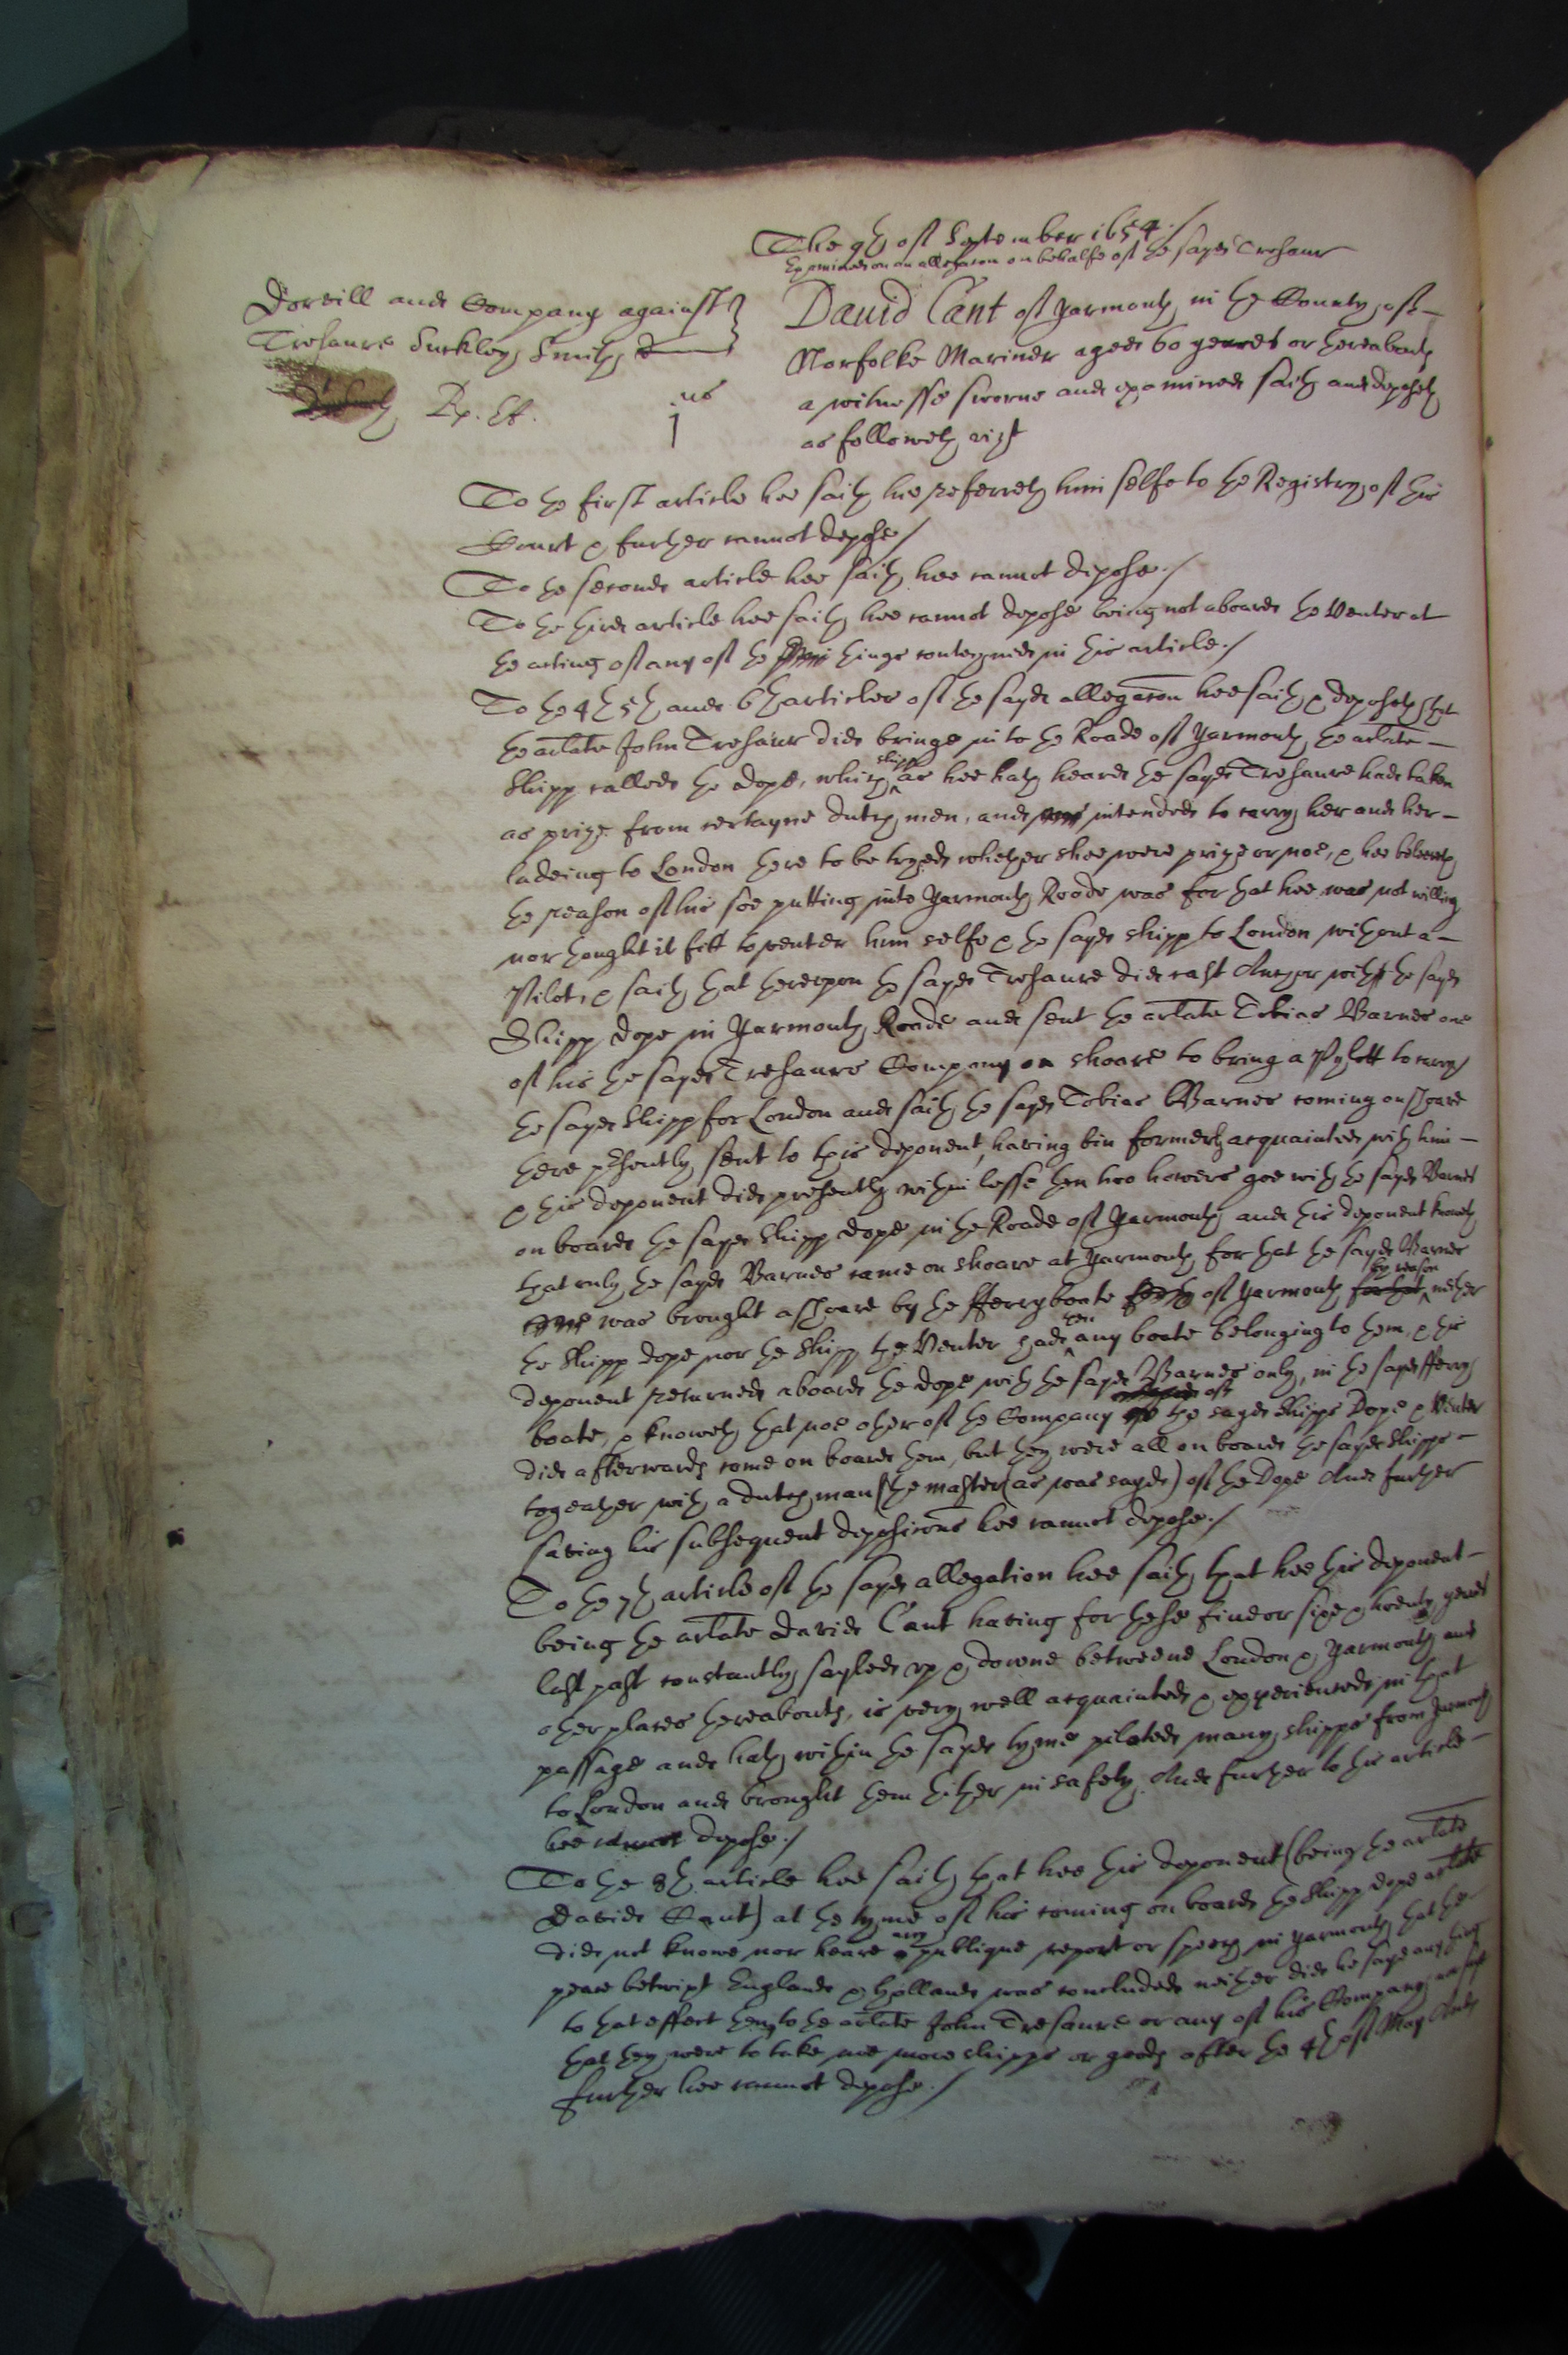 The 9th of September 1654./
Examined on an allegacon on behalfe of the sayd Tresaure
Dorvill and Company against
Tresaure Suckley Smith
Rp. Et. 1us
David Cant of Yarmouth in the County of
Norfolke Mariner aged 60 yeares or thereabouts
a witnesse sworne and examined saith and deposeth
as followeth vizt
To the first article hee saith hee referreth him selfe to the Registry of this
Court & further cannot depose/
To the second article hee saith hee cannot depose./
To the third article hee saith hee cannot depose being not aboard the Venter at
the acting of any of the things conteyned in this article./
To the 4th 5th and 6th articles of the sayd allegacon hee saith & deposeth that
the arlate John Tresaur did bringe in to the Roade of Yarmouth the arlate
Shipp called the Dope, which shipp as hee hath heard the sayd Tresaure had taken
as prize from certayne dutch men, and intended to carry her and her
ladeing to London there to be tryed whether shee were prize or noe, & hee beleeveth
the reason of his soe putting into Yarmouth Roade was for that hee was not willing
nor thought it fitt to venter him selfe & the sayd shipp to London without a
Pilot, & saith that thereupon the sayd Tresaure did cast Anchor with the sayd
Shipp Dope in Yarmouth Roade and sent the arlate Tobias Barnes one
of his the sayd Tresaures Company on shoare to bring a Pylott to carry
the sayd Shipp for London and saith the sayd Tobias Barnes coming on shoare
there presently sent to this deponent, having bin formerly acquainted with him
& this deponent did presently within lesse then two howers goe with the sayd Barnes
on board the sayd Shipp Dope in the Roade of Yarmouth and this deponent knoweth
that only the sayd Barnes came on shoare at Yarmouth for that the sayd Barnes
was brought ashoare by the fferryboate of Yarmouth for that by reason neither
the Shipp Dope nor the Shipp the Venter had then any boate belonging to them, & this
deponent returned aboard the Dope with the sayd Barnes only, in the sayd fferry
boate, & knoweth that noe other of the Company of the sayd Shipps Dope & Venter
did afterwards come on board them, but they were all on board the sayd Shipps
togeather with a dutch man (the master (as was sayd) of the Dope And further
saving his subsequent deposicons hee cannot depose./
To the 7th article of the sayd allegation hee saith that hee this deponent
being the arlate David Cant having for these five or sixe & twenty yeares
last past constantly sayled up & downe betweene London & Yarmouth and
other places thereabouts, is very well acquainted & experienced in that
passage and hath within the sayd tyme piloted many shipps from Yarmouth
to London and brought them thither in safety And further to this article
hee cannot depose./
To the 8th article hee saith that hee this deponent (being the arlate
David Cant) at the tyme of his coming on board the Shipp Dope arlate
did not knowe nor heare any publique report or speech in Yarmouth that the
peace betwixt England & Holland was concluded neither did he saye any thing
to that effect then to the arlate John Tresaure or any of his Company nor
that they were to take noe more shipps or goods after the 4th of May And
further hee cannot depose./